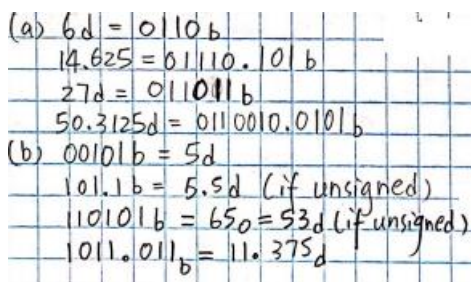 (a) 6d = 0110b
14.625 = 01110.101b
27d = 011011b
50.3125d = 0110010.0101b
(b) 00101b = 5d
101.1b = 5.5d (if unsigned)
110101b = 65o = 53d (if unsigned)
1011.011b = 11.375d